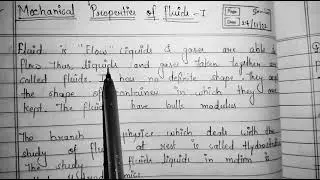 Mechanical Properties of Fluids-I
Fluid is "Flow" Liquids & gases are able
flow. Thus liquids and gases taken together are
called fluids. have no definite shape they
the shape of container in which they are
kept. The fluid have bulk modulus.
The branch physics which deals with the
study of at rest is called
The study fluids liquids in motion is